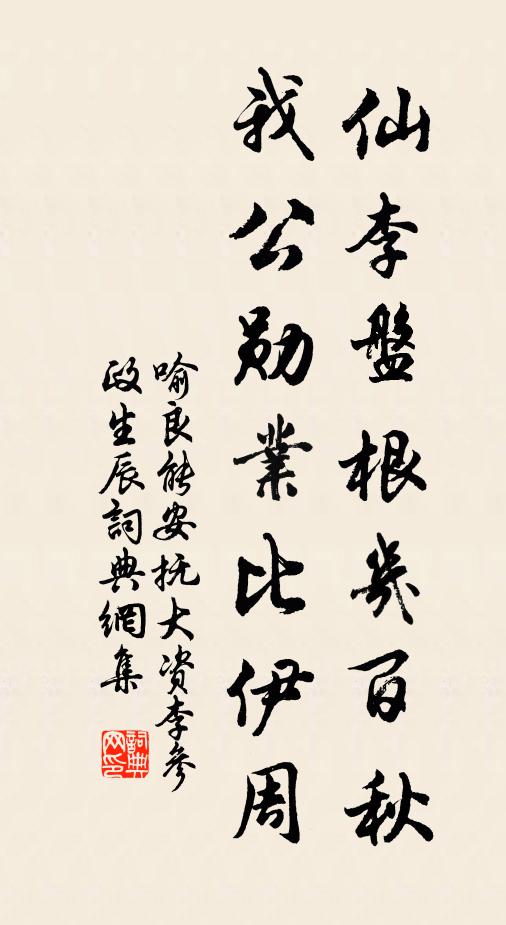 仙李盤根幾百秋
我公勛業比伊周
喻良能安抚大资李參
政生辰詞典網集
詞典
网印